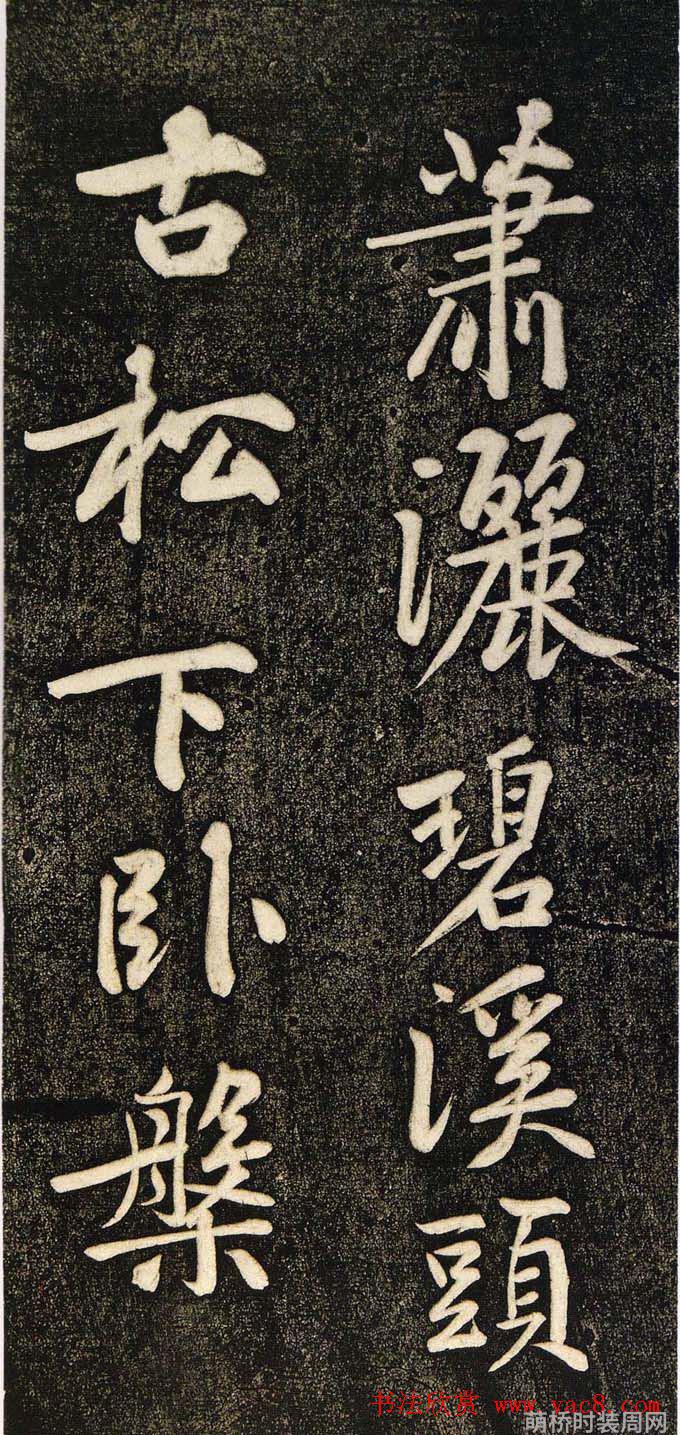 蕭灑碧溪頭
古松下臥槃
书法欣赏 www.yac8.com
萌桥时装周网